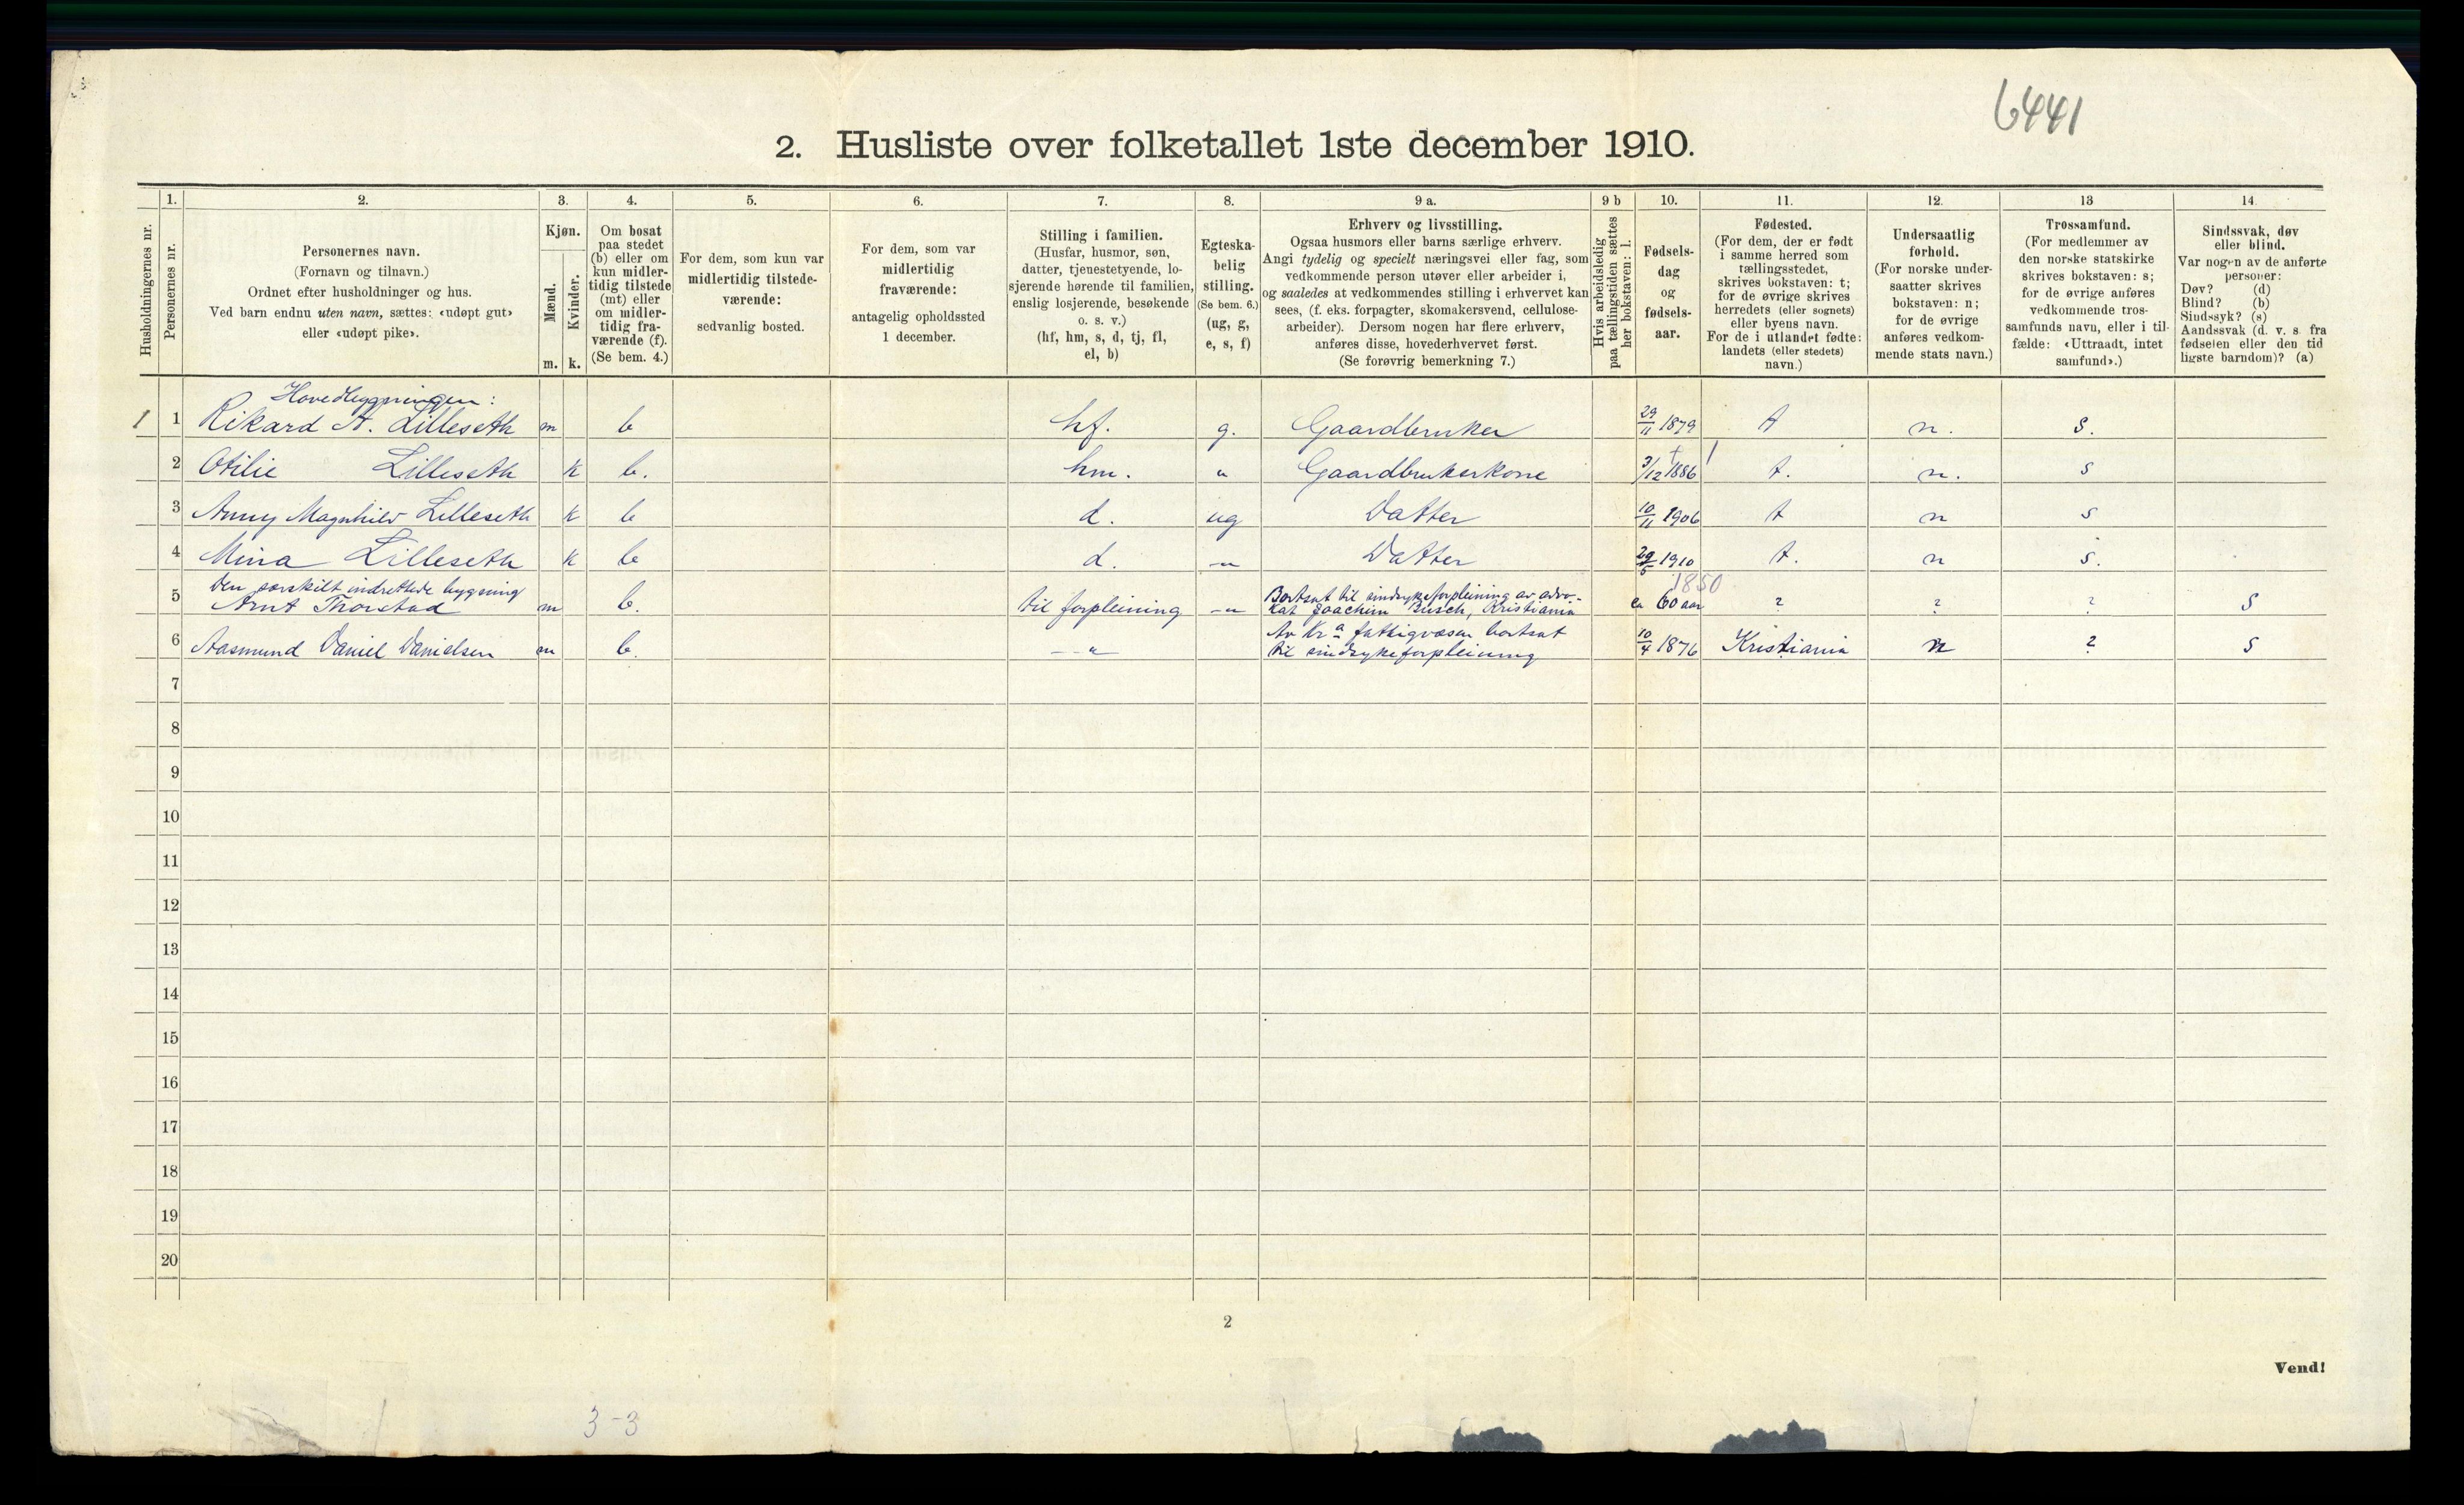 6441
2. Husliste over folketallet 1ste december 1910.
Husholdningernes nr.
1.
Personernes nr.
2.
Personernes navn.
(Fornavn og tilnavn.)
Ordnet efter husholdninger og hus.
Ved barn endnu uten navn, sættes: «udøpt gut»
eller «udøpt pike».
3.
Kjøn.
Mænd.
Kvinder.
m. k.
4.
Om bosat
paa stedet
(b) eller om
kun midler-
tidig tilstede
(mt) eller
om midler-
tidig fra-
værende (f).
(Se bem. 4.)
5.
For dem, som kun var
midlertidig tilstede-
værende:
sedvanlig bosted.
6.
For dem, som var
midlertidig
fraværende:
antagelig opholdssted
1 december.
7.
Stilling i familien.
(Husfar, husmor, søn,
datter, tjenestetyende, lo-
sjerende hørende til familien,
enslig losjerende, besøkende
o. s. v.)
(hf, hm, s, d, tj, fl,
el, b)
8.
Egteska-
belig
stilling.
(Se bem. 6.)
(ug, g,
e, s, f)
9 a.
Erhverv og livsstilling.
Ogsaa husmors eller barns særlige erhverv.
Angi tydelig og specielt næringsvei eller fag, som
vedkommende person utøver eller arbeider i,
og saaledes at vedkommendes stilling i erhvervet kan
sees, (f. eks. forpagter, skomakersvend, cellulose-
arbeider). Dersom nogen har flere erhverv,
anføres disse, hovederhvervet først.
(Se forøvrig bemerkning 7.)
9 b
Hvis arbeidsledig
paa tællingstiden sættes
her bokstaven: l.
10.
Fødsels-
dag
og
fødsels-
aar.
11.
Fødested.
(For dem, der er født
i samme herred som
tællingsstedet,
skrives bokstaven: t;
for de øvrige skrives
herredets (eller sognets)
eller byens navn.
For de i utlandet fødte:
landets (eller stedets)
navn.)
12.
Undersaatlig
forhold.
(For norske under-
saatter skrives
bokstaven: n;
for de øvrige
anføres vedkom-
mende stats navn.)
13
Trossamfund.
(For medlemmer av
den norske statskirke
skrives bokstaven: s;
for de øvrige anføres
vedkommende tros-
samfunds navn, eller i til-
fælde: «Uttraadt, intet
samfund».)
14
Sindssvak, døv
eller blind.
Var nogen av de anførte
personer:
Døv? (d)
Blind? (b)
Sindssyk? (s)
Aandssvak (d. v. s. fra
fødselen eller den tid
ligste barndom)? (a)
Hovedbygningen:
1 1 Rikard A. Lilleseth m b hf. g. Gaardbruker 29/11 1879 t n. s.
2 Otilie Lilleseth k b. hm. " Gaardbrukerkone 3/12 1886 t. n. s
3 Anny Magnhild Lilleseth k b d. ug Datter 10/11 1906 t n s
4 Mina Lilleseth k b d. -"- Datter 29/5 1910 t. n s.
Den særskilt indrettede bygning
1850
5 Arnt Thorstad m b. til forpleining -"- Bortsat til sindsykeforpleining av advo-
kat Joachim Busch, Kristiania ca 60 aar ? ? ? S
6 Aasmund Daniel Danielsen m b. -"- Av Kra fattigvæsen bortsat
til sindsykeforpleining 10/4 1876 Kristiania n ? S
7
8
9
10
11
12
13
14
15
16
17
18
19
20
2
Vend!
3-3